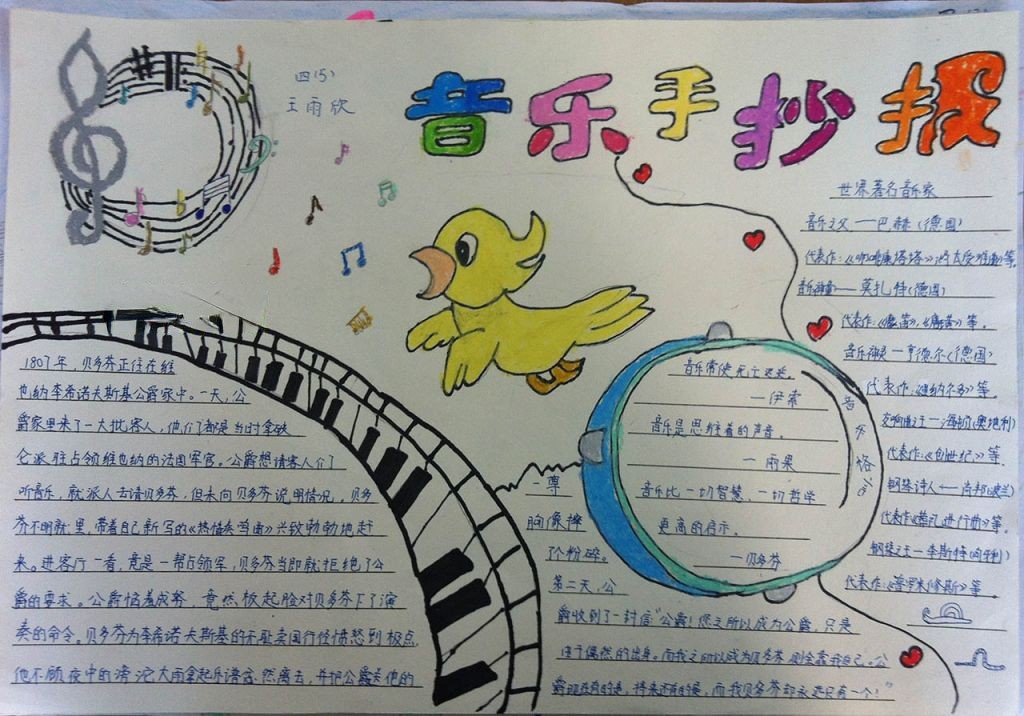 四(5)
王雨欣
音乐手抄报
1807年,贝多芬正住在维
也纳李希诺夫斯基公爵家中。一天,公
爵家里来了一大批客人,他们都是当时拿破
仑派驻占领维也纳的法国军官。公爵想请客人们
听音乐,就派人去请贝多芬,但未向贝多芬说明情况。贝多
芬不明就里,带着自己新写的《热情奏鸣曲》兴致勃勃地赶
来。进客厅一看,竟是一帮占领军,贝多芬当即就拒绝了公
爵的要求。公爵恼羞成怒,竟然板起脸对贝多芬下了演
奏的命令。贝多芬为李希诺夫斯基的无耻卖国行径愤怒到极点
他不顾夜中的滂沱大雨拿起乐谱忿然离去,并把公爵送他的
一尊
胸像摔
了个粉碎。
第二天,公
爵收到了一封信"公爵!您之所以成为公爵,只是
由于偶然的出身。而我之所以成为贝多芬则全靠我自己。公
爵现在有的是,将来还有的是,而我贝多芬却永远只有一个!"
音乐常使死亡迟延。
—伊索
音乐是思维着的声音。
—雨果
音乐比一切智慧、一切哲学
更高的启示。
—贝多芬
音乐格言
世界著名音乐家
音乐之父—巴赫(德国)
等。
音乐神童—莫扎特(德国)
代表作:《魔笛》,等。
音乐神灵—亨德尔(德国)
代表作:等。
交响曲之—海顿(奥地利)
代表作:《创世纪》等.
钢琴诗人—肖邦(波兰)
代表作《葬礼进行曲》等
钢琴之王—李斯特(匈牙利)
代表作:《普罗米修斯》等